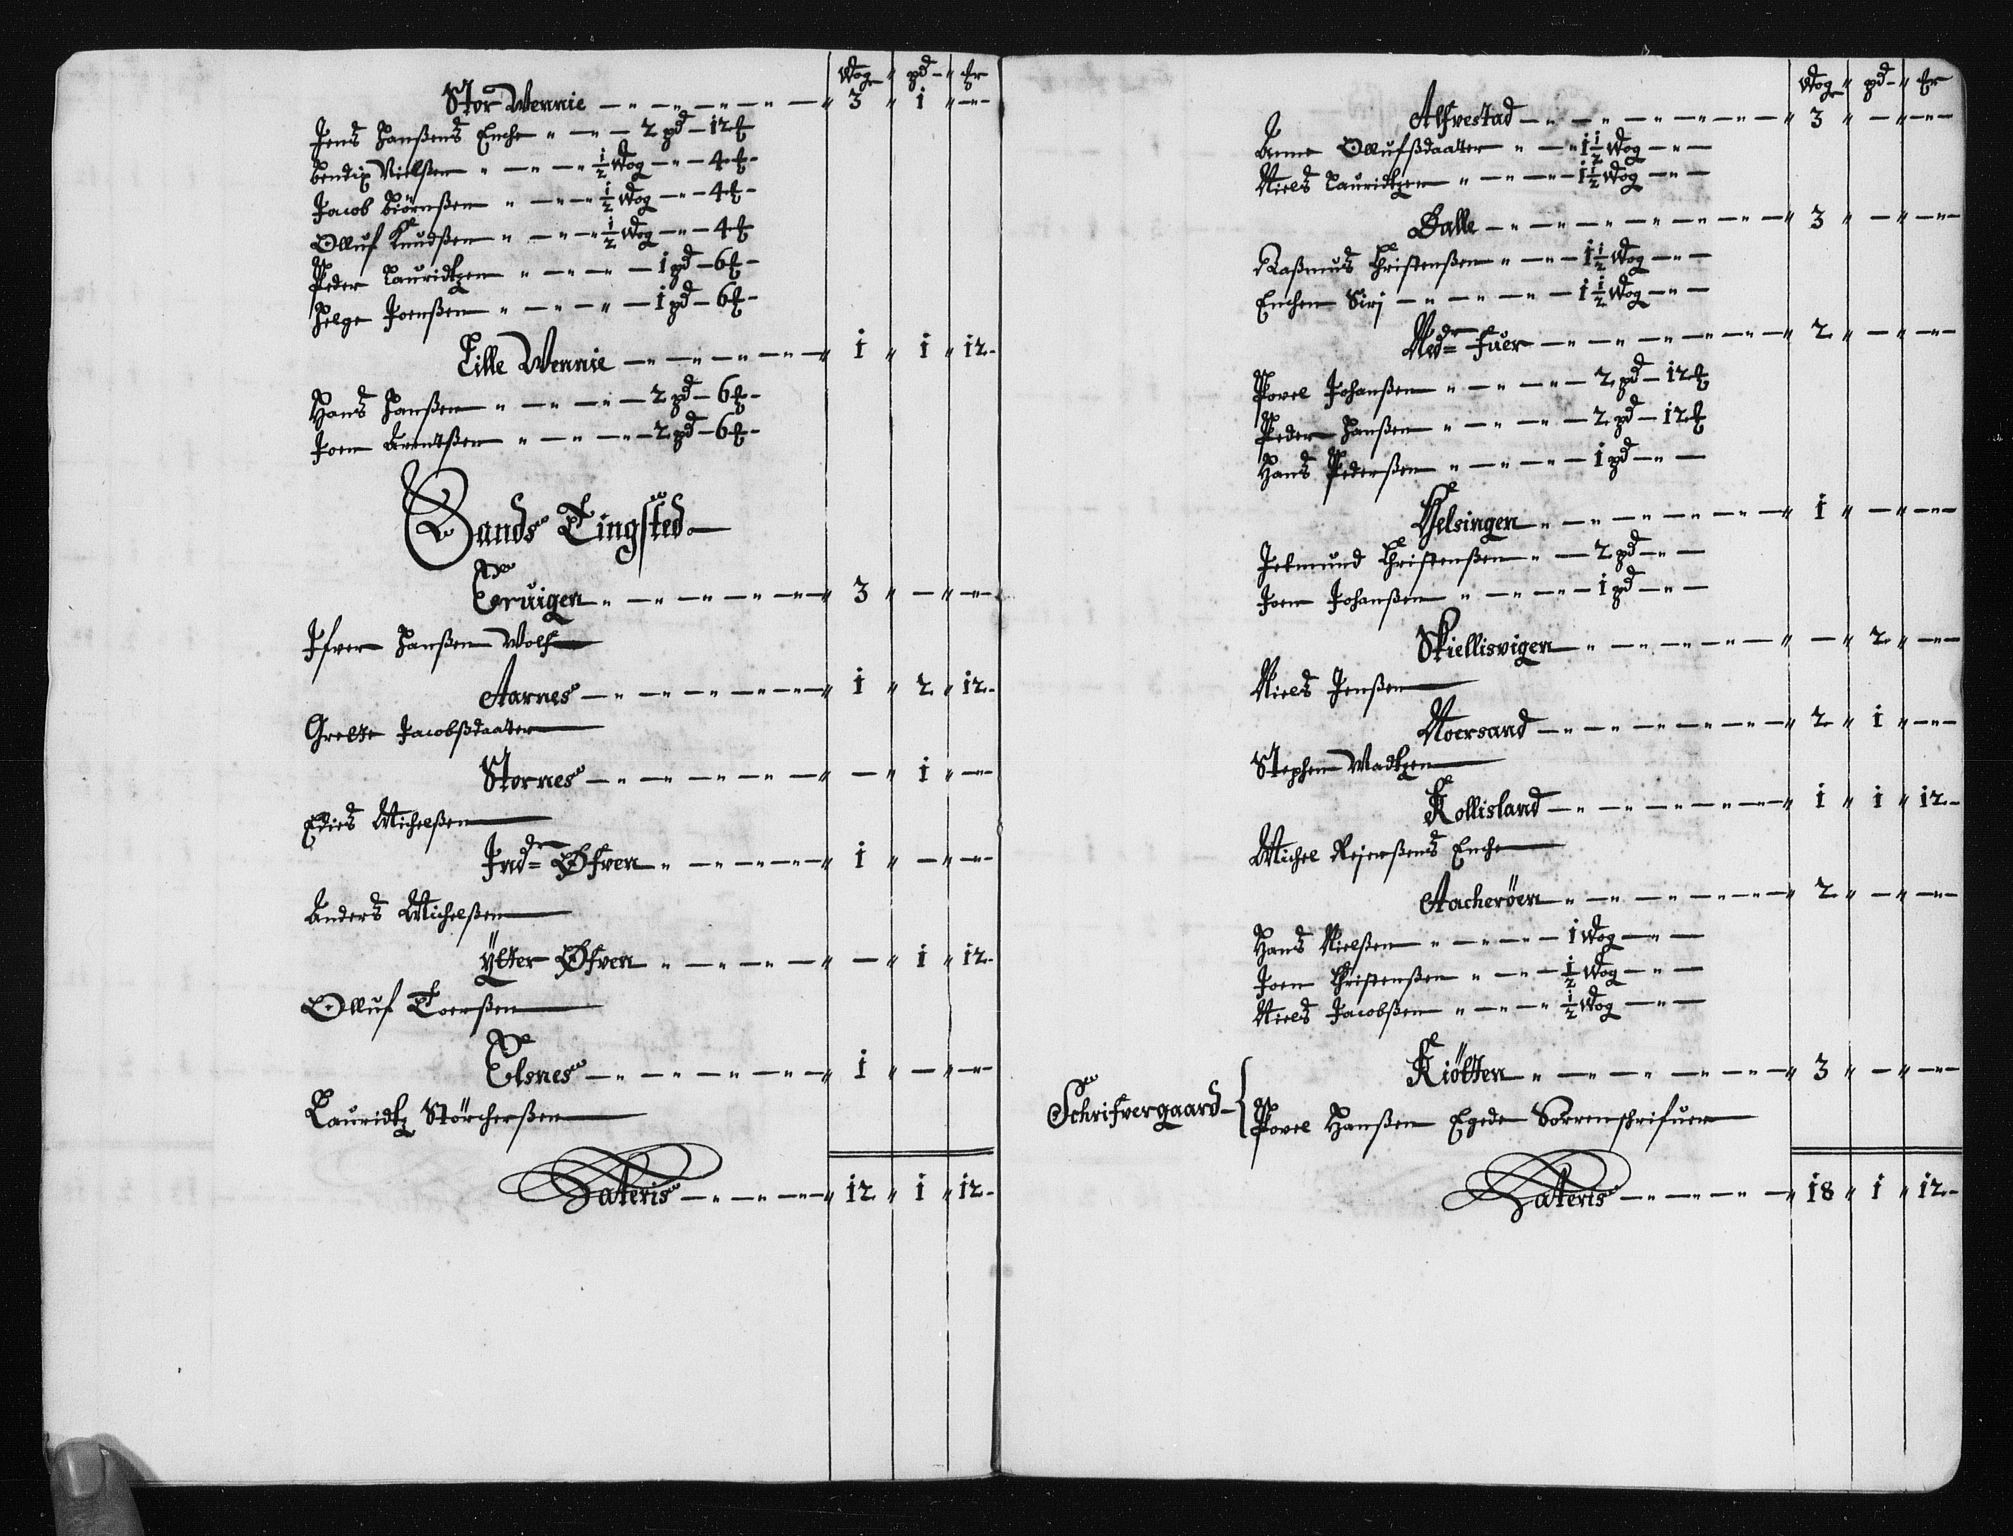 Wog " pd - " ℔r
Stor Wennie — " — " — " — " 3 " 1 " — " —
Jens Hanßens Enche " — " — 2 pd — 12 ℔
Bendix Nielßen " — " — " ½ Wog — " — 4 ℔ -
Jacob Biörnßen " — " — " ½ Wog — " — 4 ℔ -
Olluf Knudßen " — " — " ½ Wog — " — 4 ℔
Peder Lauridtzen " — " — " — 1 pd — 6 ℔ -
Helge Joenßen " — " — " — 1 pd — 6 ℔ -
Lille Wennie — " — " — " — " 1 " 1 " 12 -
Hans Hanßen " — " — " — 2 pd — 6 ℔ -
Joen Arentßen " — " — " — 2 pd — 6 ℔ -
Sands Tingsted
Eruigen " — " — " — " — " 3 " — " — " —
Ifver Hanßen Wolf
Aarnes — " — " — " — " 1 " 2 " 12 -
Grette Jacobßdaatter
Stornes — " — " — " — " — " 1 " — " —
Edies Michelßen
Indr Øfven " — " — " — " 1 " — " — " —
Anders Michelßen
Ÿtter Øfven " — " — " — " — " 1 " 12 -
Olluf Toerßen
Elsnes — " — " — " — " 1 " — " — " —
Lauridtz Störcherßen
Lateris — " — " — " 12 " 1 " 12 -
Wog " pd - " ℔r
Alfvestad — " — " — " — " 3 " — " — " —
Anne Ollufßdaatter " — " 1½ Wog — " —
Niels Lauridtzen " — " — " 1½ Wog — " —
Dalle — " — " — " — " 3 " — " — " —
Raßmus Christenßen " — " — 1½ Wog — " —
Enchen Siri — " — " — " — 1½ Wog — " —
Nedr Fuer — " — " — " — " 2 " — " — " —
Povel Johanßen " — " — " — 2 pd — 12 ℔
Peder Hanßen " — " — " — 2 pd — 12 ℔
Hans Pederßen " — " — " — 1 pd — " —
Helsingen " — " — " — " — " 1 " — " — " —
Jetmund Christenßen " — 2 pd — " —
Joen Johanßen " — " — " — 1 pd — " —
Skiellisvigen " — " — " — " — " 2 " — " —
Niels Jenßen
Noersand — " — " — " — " 2 " 1 " — " —
Stephen Madtzen
Kollisland — " — " — " — " 1 " 1 " 12 -
Michel Rejerßens Enche
Aacheröen " — " — " — " 2 " — " — " —
Hans Nielßen " — " — " — 1 Wog — " —
Joen Christenßen " — " — ½ Wog — " —
Niels Jacobßen " — " — " ½ Wog — " —
Kiötten " — " — " — " — " 3 " — " — " —
Schrifvergaard — { Povel Hanßen Egede Sorrenschrifuer
Lateris — " — " — " 18 " 1 " 12 -